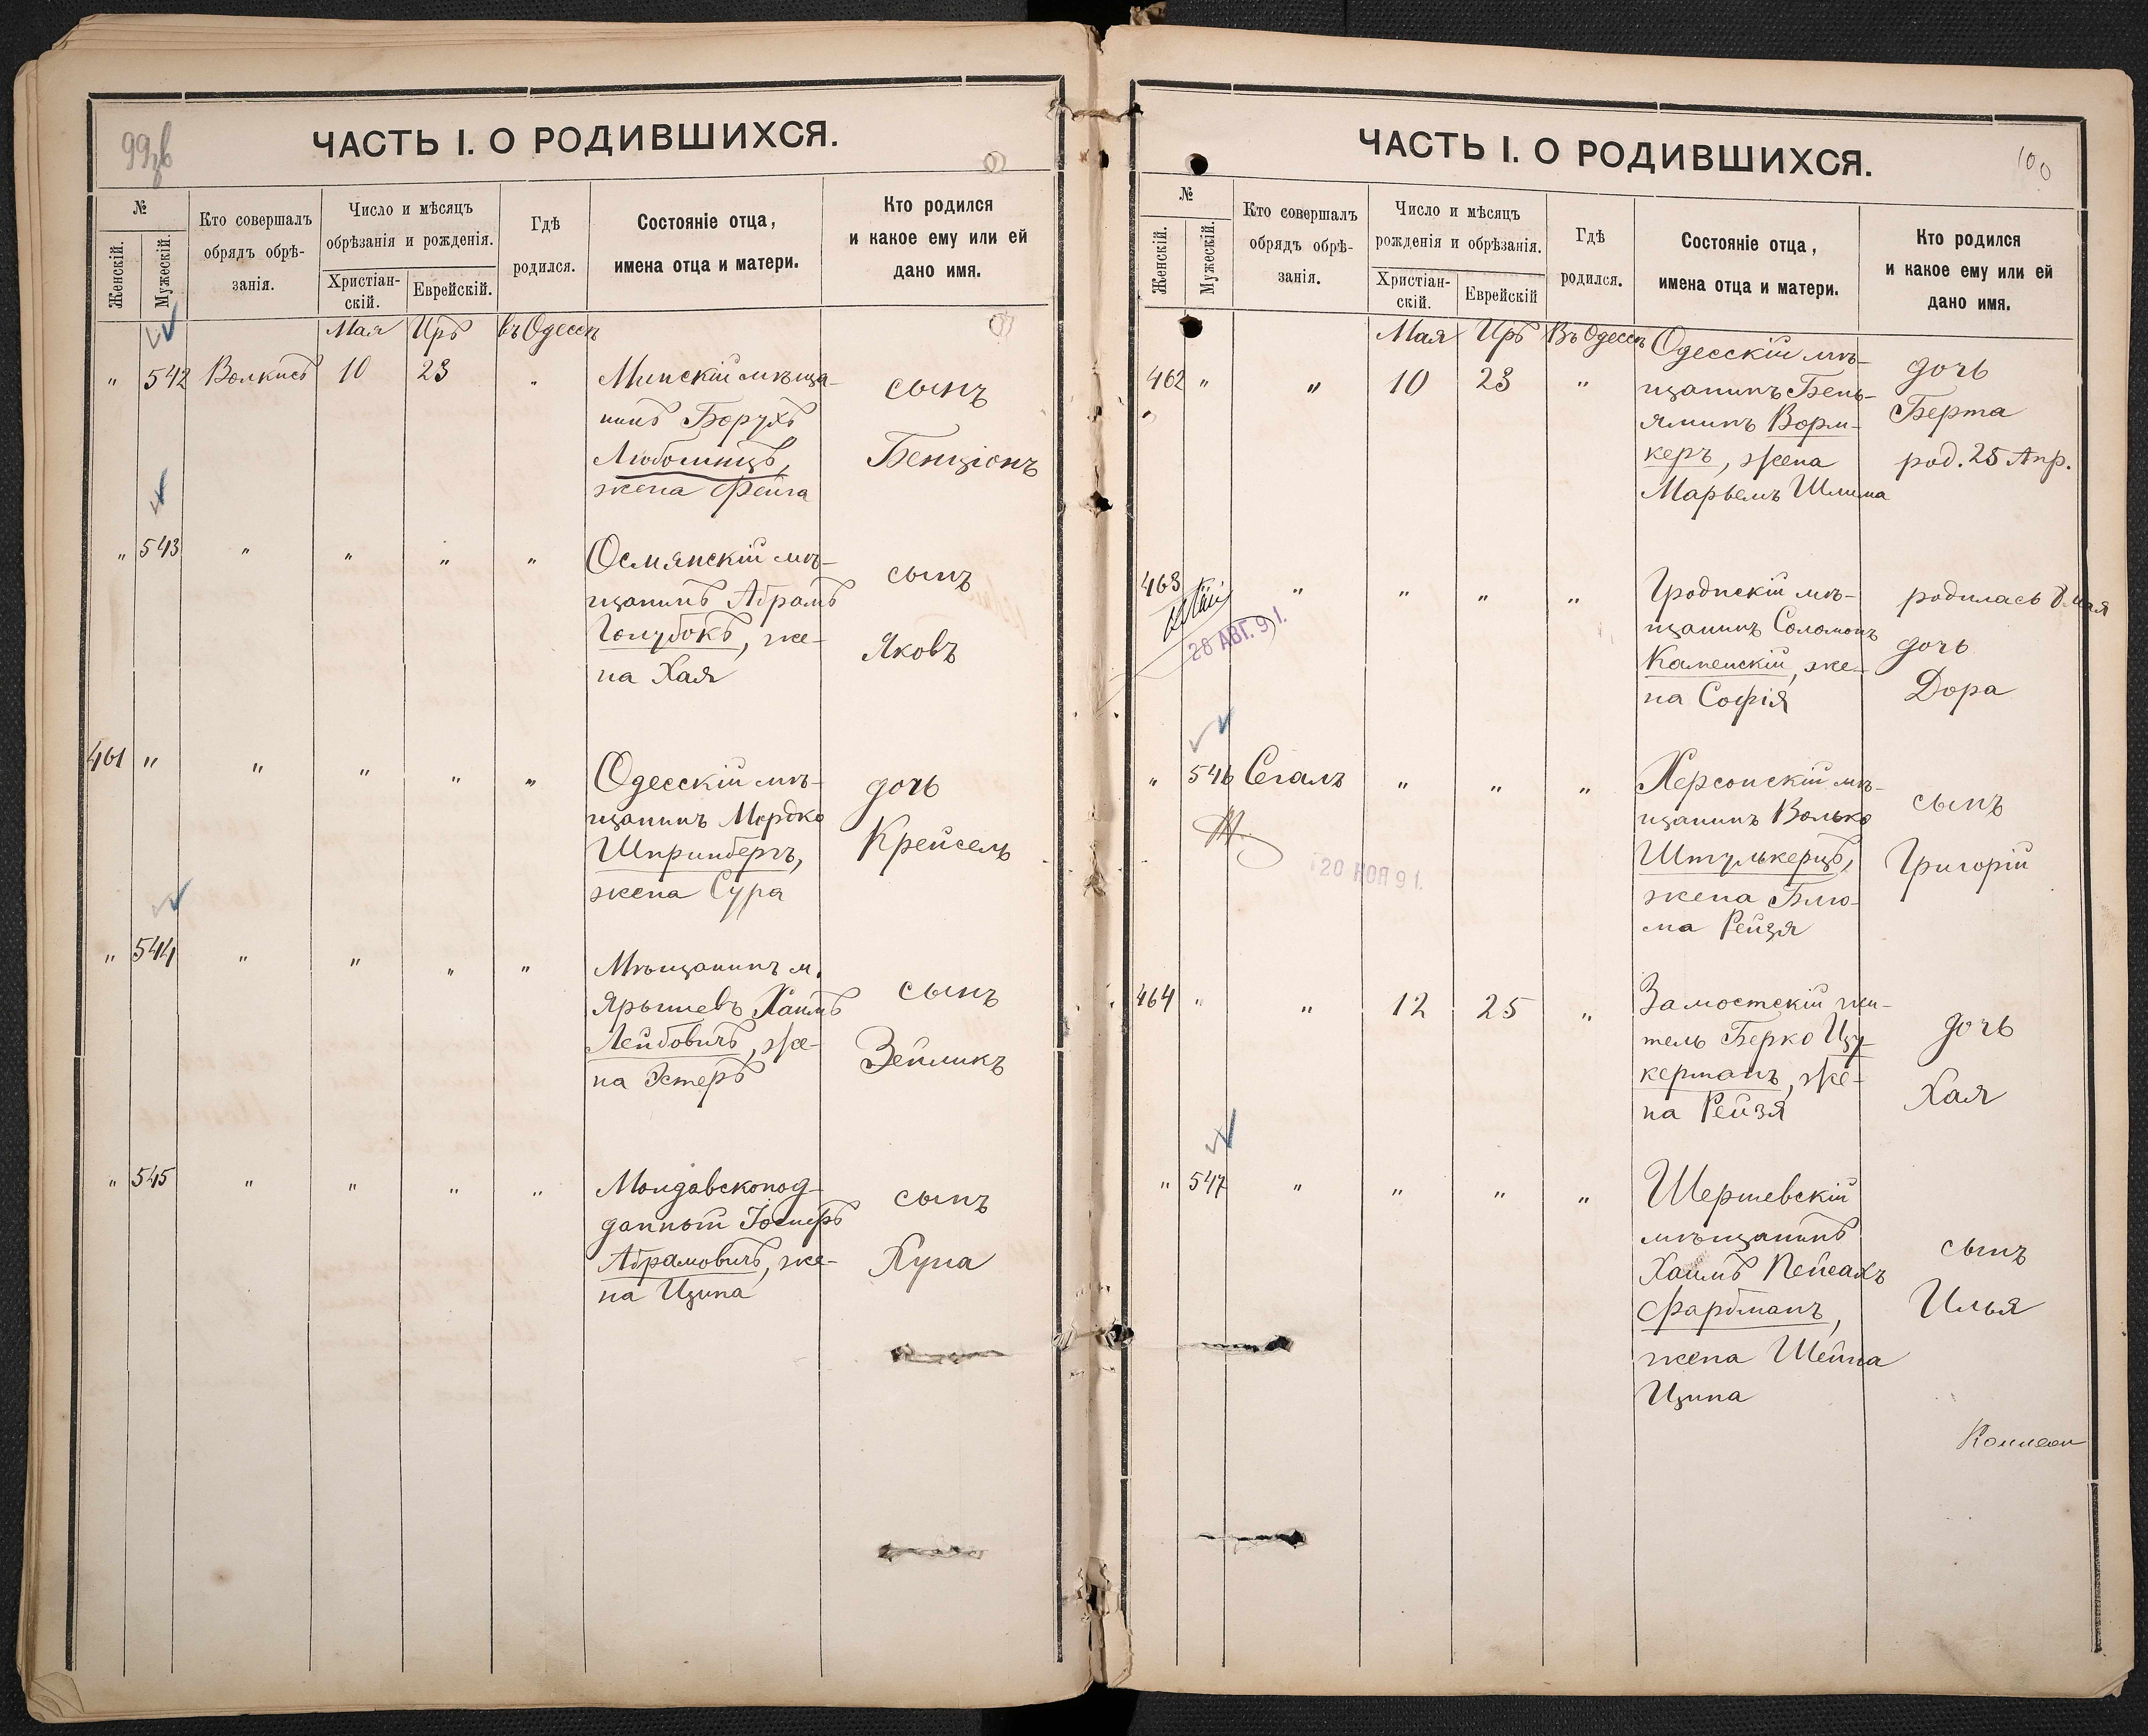 99зв
ЧАСТЬ I. О РОДИВШИХСЯ.
№
Женскій.
Мужескій.
Кто совершалъ
обрядъ обрѣ-
занія.
Число и мѣсяцъ
обрѣзанія и рожденія.
Христіан-
скій.
Еврейскій.
Гдѣ
родился.
Состояніе отца,
имена отца и матери.
Кто родился
и какое ему или ей
дано имя.
Мая Іiръ въ Одессѣ
" 542 Волкисъ 10 23 "
Минскій мѣща-
нинъ Борухъ
Любошицъ,
жена Фейга
сынъ
Бенціонъ
" 543 " " " "
Осмянскій мѣ-
щанинъ Абрамъ
Голубокъ, же-
на Хая
сынъ
Яковъ
461 " " " " "
Одесскій мѣ-
щанинъ Мордко
Шпринбергъ,
жена Сура
дочь
Крейсель
" 544 " " " "
Мѣщанинъ м.
Ярышевъ Хаимъ
Лейбовичъ, же-
на Эстеръ
сынъ
Зейликъ
" 545 " " " "
Молдавскопод-
данный Іосифъ
Абрамовичъ, же-
на Ципа
сынъ
Хуна
100
ЧАСТЬ I. О РОДИВШИХСЯ.
№
Женскій.
Мужескій.
Кто совершалъ
обрядъ обрѣ-
занія.
Число и мѣсяцъ
рожденія и обрѣзанія.
Христіан-
скій.
Еврейскій
Гдѣ
родился.
Состояніе отца,
имена отца и матери.
Кто родился
и какое ему или ей
дано имя.
Мая Іiръ Въ Одессѣ
462 " " 10 23 "
Одесскій мѣ-
щанинъ Бень-
яминъ Ворм-
керъ, жена
Марьемъ Шлима
дочь
Берта
род. 25 Апр.
463 " " " "
28 АВГ. 91.
Гродпскій мѣ-
щанинъ Соломонъ
Каменскій, же-
на Софія
родилась 8 мая
дочь
Дора
" 546 Сегалъ " " "
20 НОЯ 91.
Херсонскій мѣ-
щанинъ Волько
Штулькерцъ,
жена Блю-
ма Рейзя
сынъ
Григорій
464 " " 12 25 "
Замостскій жи-
тель Берко Цу-
керманъ, же-
на Рейзя
дочь
Хая
" 547 " " " "
Шершевскій
мѣщанинъ
Хаимъ Пейсахъ
Фарбманъ,
жена Шейна
Ципа
сынъ
Илья